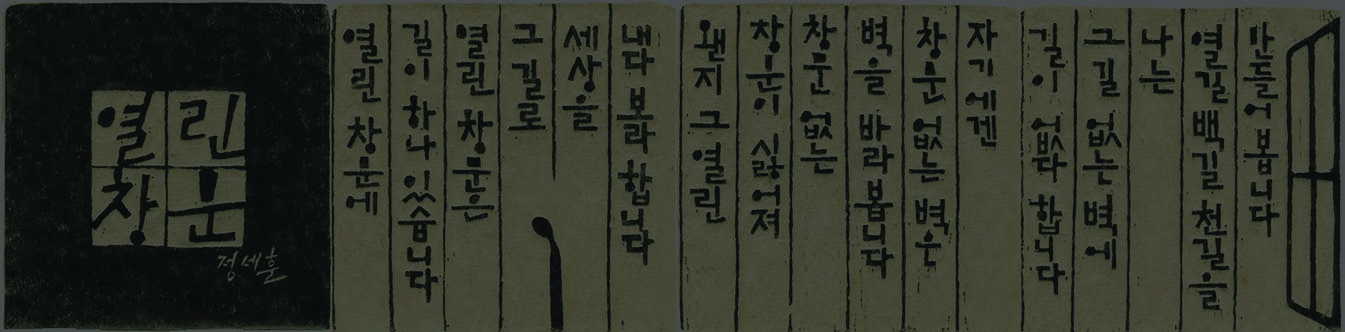 열린
창문
정세훈
열린 창문에
길이 하나 있습니다
열린 창문은
그 길로
세상을
내다 보라 합니다
왠지 그 열린
창문이 싫어져
창문 없는
벽을 바라 봅니다
창문 없는 벽은
자기에겐
길이 없다 합니다
그 길 없는 벽에
나는
열 길 백 길 천 길을
만들어 봅니다